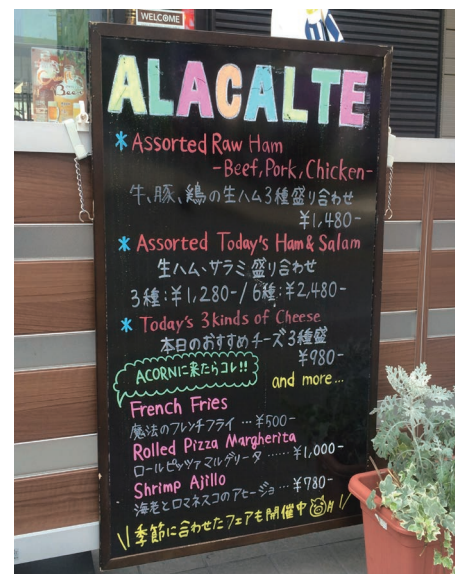 WELCOME
Beer
ALACALTE
* Assorted Raw Ham
-Beef, Pork, Chicken-
牛、豚、鶏の生ハム3種盛り合わせ
¥1,480-
* Assorted Today's Ham & Salam
生ハム、サラミ盛り合わせ
3種:¥1,280-/6種:¥2,480-
* Today's 3kinds of Cheese
本日のおすすめチーズ3種盛
¥980-
ACORNに来たらコレ!!
and more...
French Fries
魔法のフレンチフライ…¥500-
Rolled Pizza Margherita
ロールピッツァマルゲリータ……¥1,000-
Shrimp Ajillo
海老とロマネスコのアヒージョ…¥780-
\\季節に合わせたフェアも開催中//